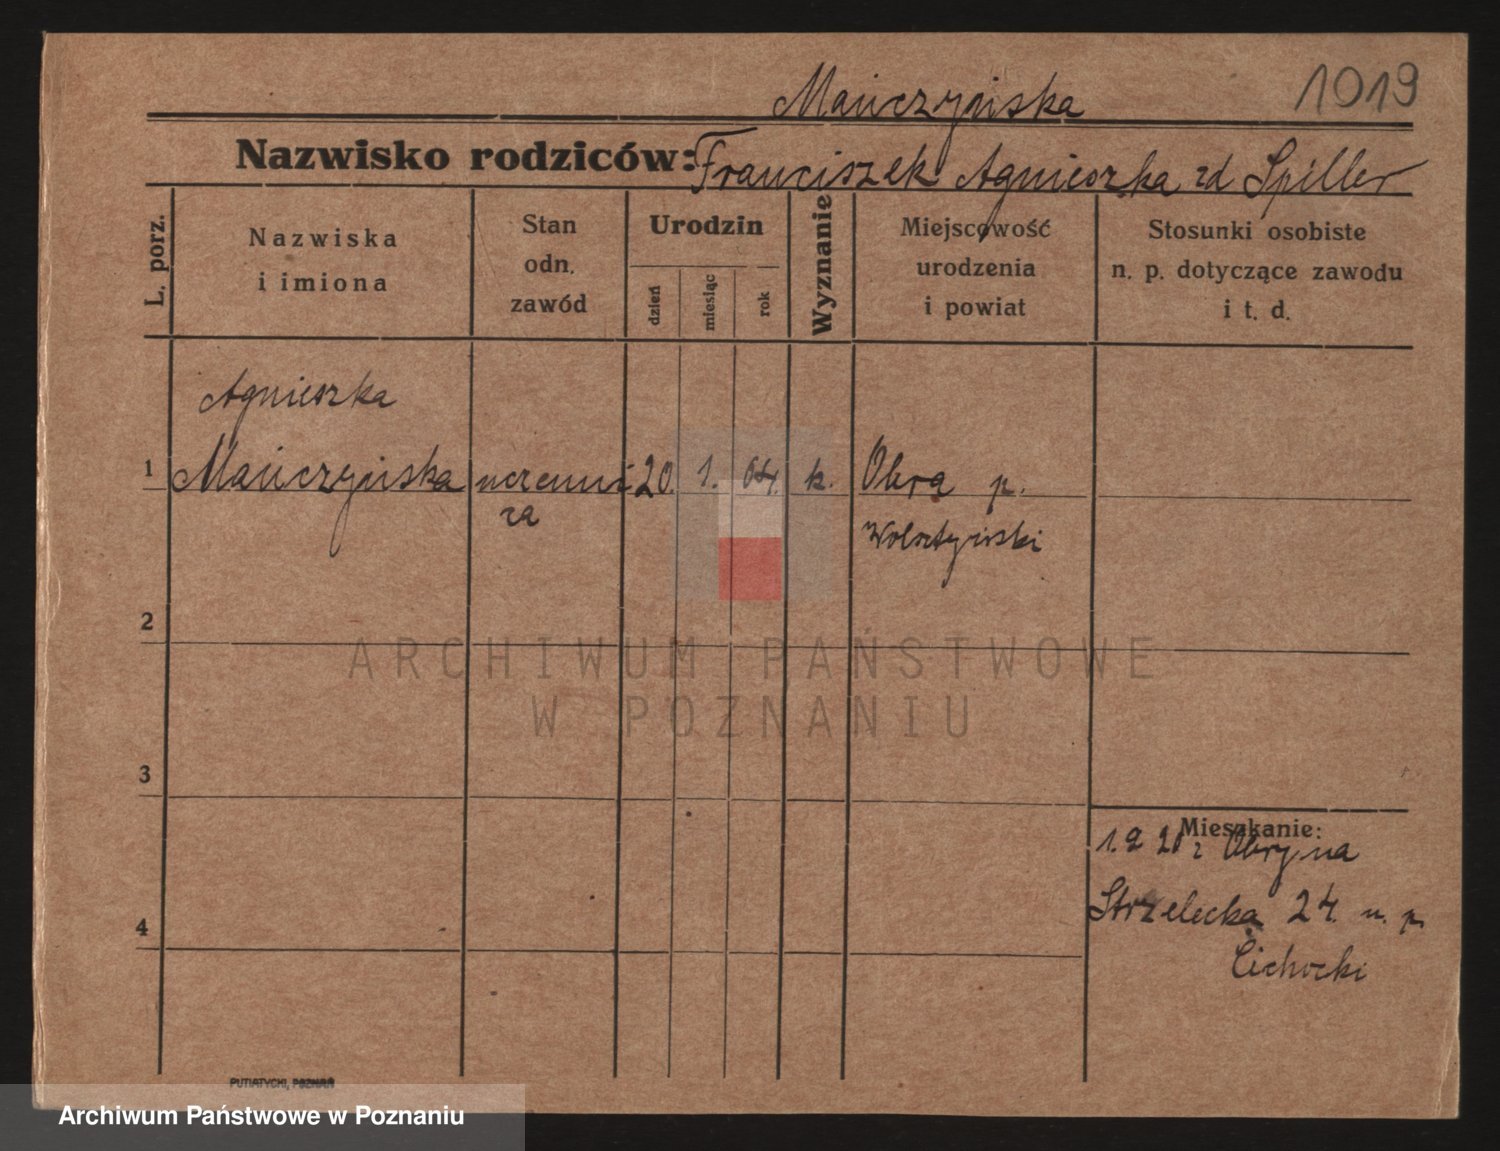 Mańczyńska 1019
Nazwisko rodziców: Franciszek Agnieszka zd Spiller
L. porz.
Nazwiska
i imiona
Stan
odn.
zawód
Urodzin
dzień
miesiąc
rok
Wyznanie
Miejscowość
urodzenia
i powiat
Stosunki osobiste
n. p. dotyczące zawodu
i t. d.
Agnieszka
1 Mańczyńska uczenni 20. 1. 04. k. Obra p.
ca
Wolsztyński
2
3
4
Mieszkanie:
1.9 20 z Obry na
Strzelecka 24. u. p.
Cichocki
PUTIATYCKI, POZNAŃ
ARCHIWUM PAŃSTWOWE
W POZNANIU
Archiwum Państwowe w Poznaniu